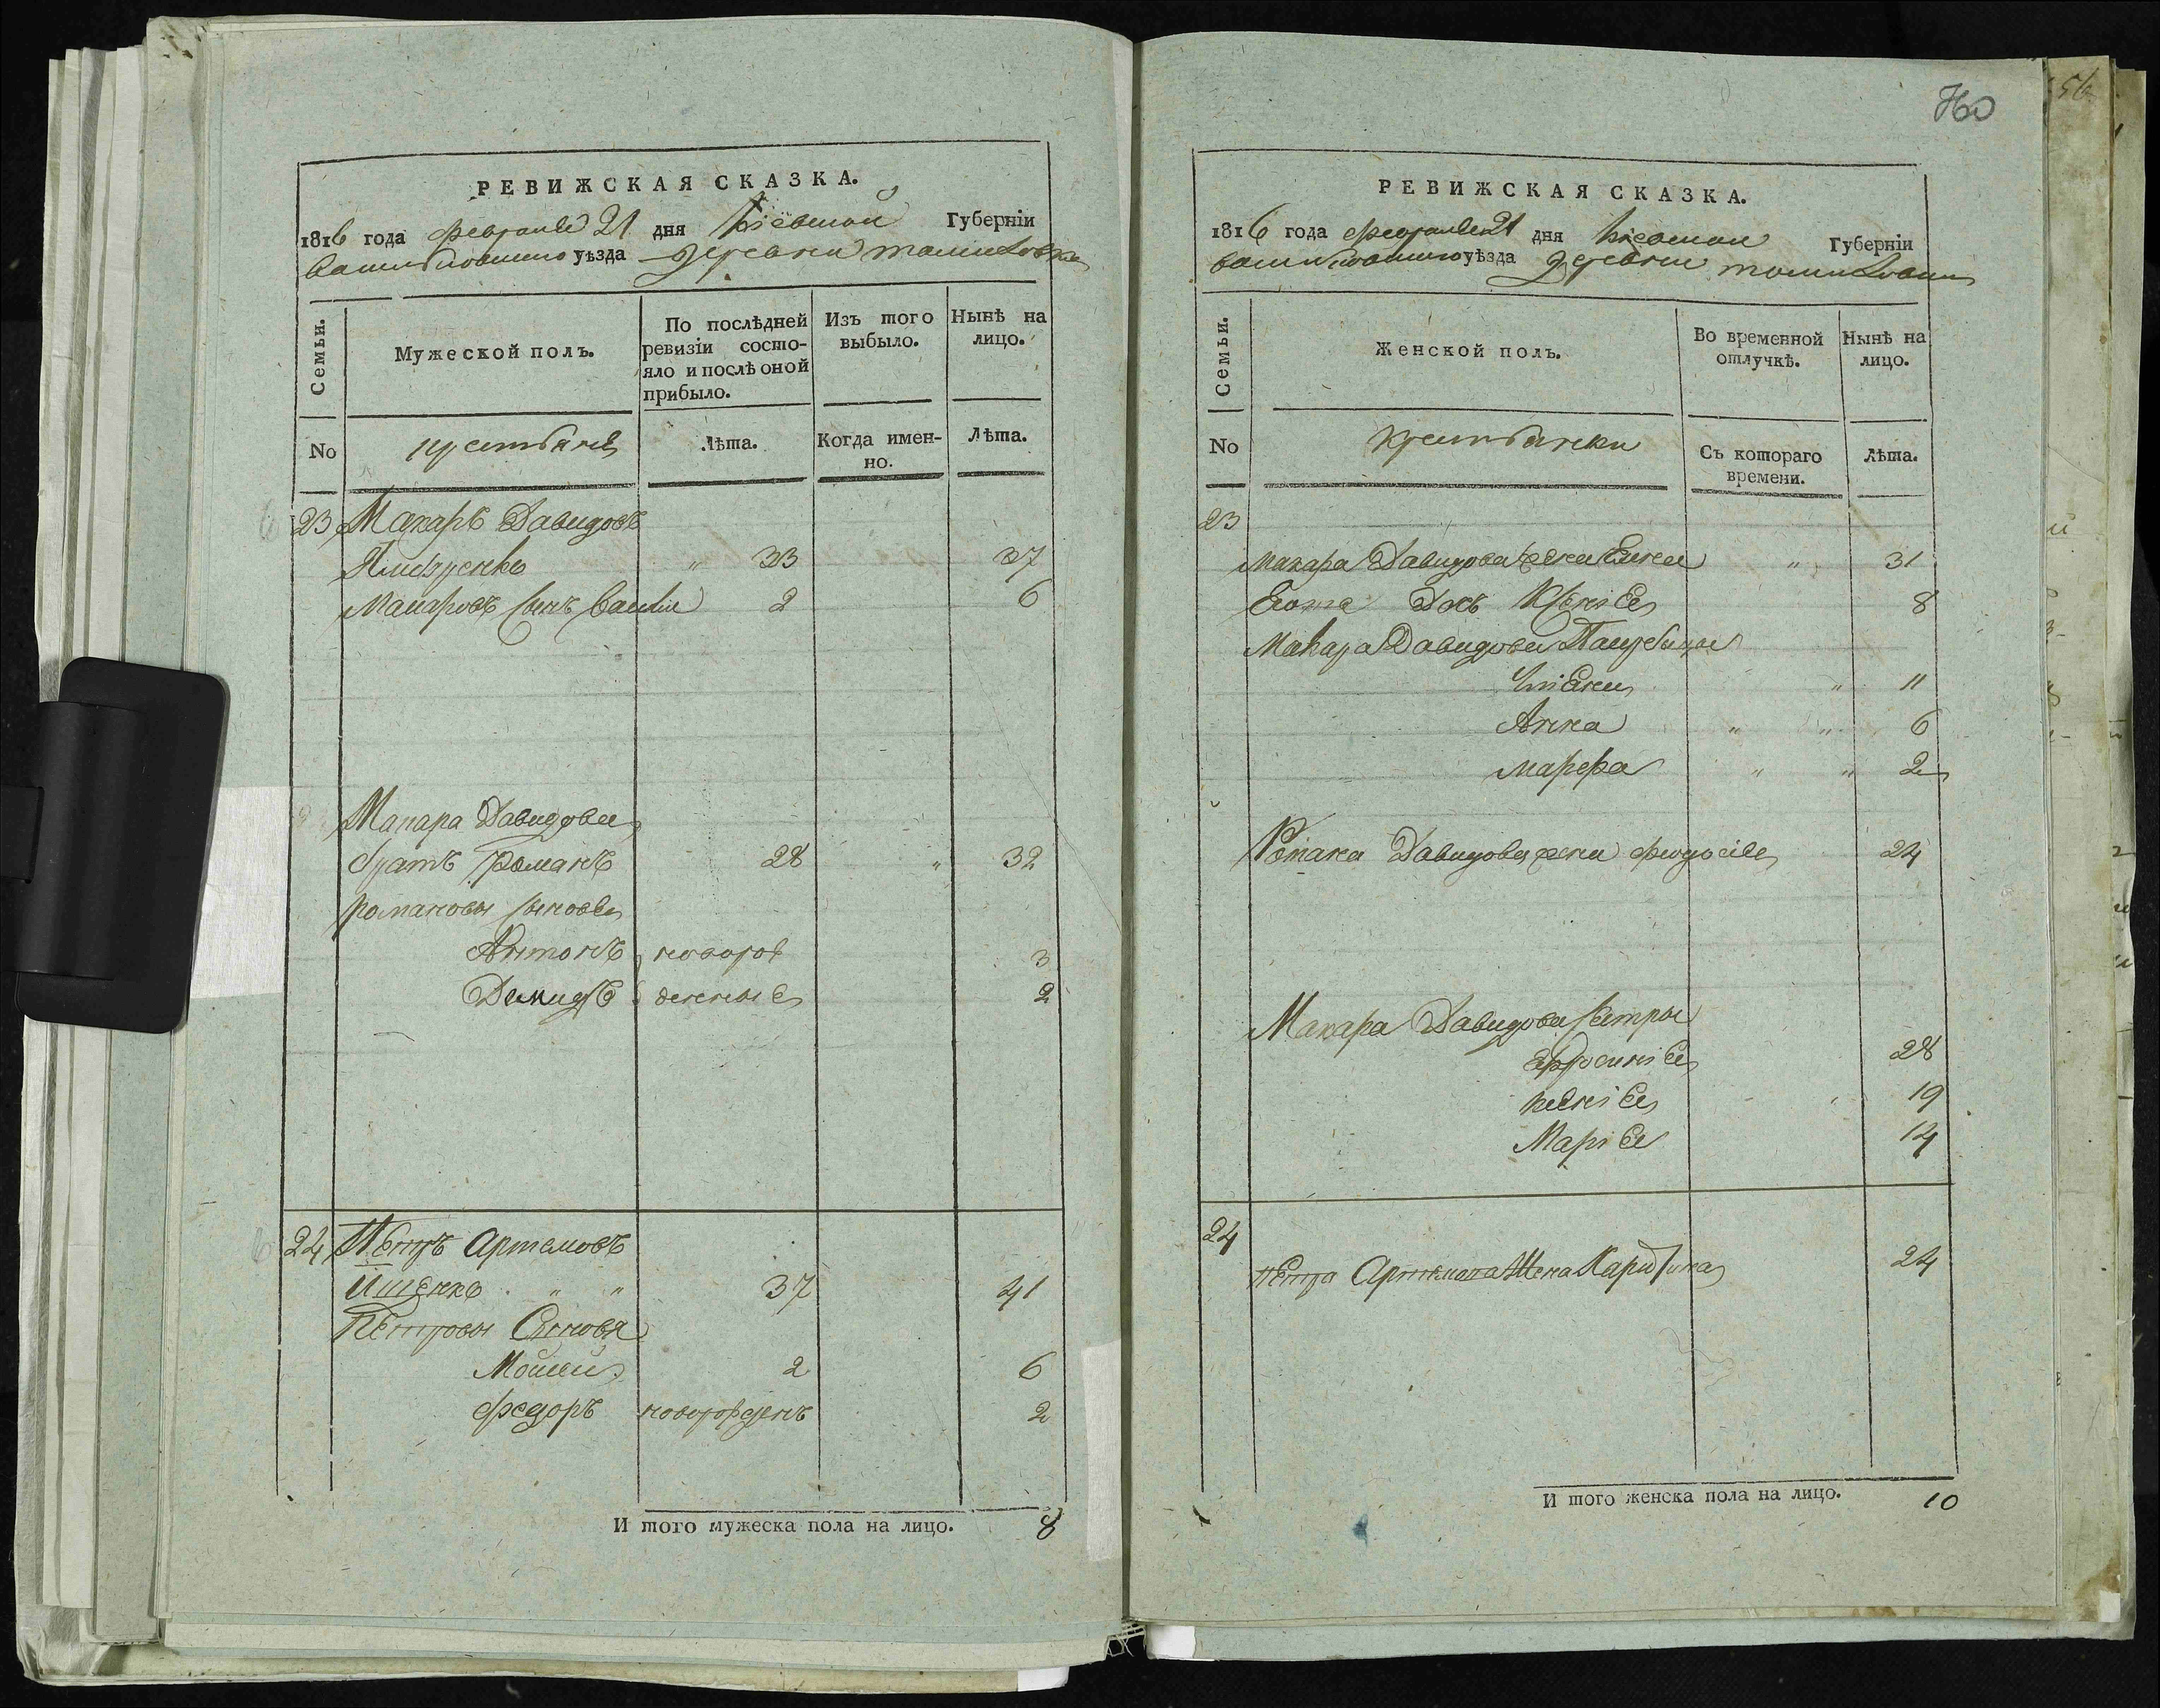 РЕВИЖСКАЯ СКАЗКА.
1816 года февраля 21 дня Кіевской Губерніи
Васильковскаго уѣзда деревни
Семьи.
Мужеской полъ.
По послѣдней ревизіи состо-
яло и послѣ оной прибыло.
Изъ того выбыло.
Нынѣ на лицо.
No
крестьяне
Лѣта.
Когда имен-
но.
Лѣта.
23 Макаръ Давидовъ
" 33 37
Макаровъ сынъ 2 6
Макара Давидова
братъ Романъ 28 " 32
Романовы сыновья
Антонъ новорож 3
Демидъ денные 2
24 Петръ Артемовъ
Ищенко " " 37 41
Петровы Сыновя
Мойсей 2 6
Федоръ новорожденъ 2
И того мужеска пола на лицо. 8
56
РЕВИЖСКАЯ СКАЗКА.
1816 года февраля 21 дня Кіевской Губерніи
Васильковскаго уѣзда деревни
Семьи.
Женской полъ.
Во временной отлучкѣ.
Нынѣ на лицо.
No
Крестьянки
Съ котораго времени.
Лѣта.
23
Макара Давидова жена " 31
Его дочь Ксенія 8
Макара Давидова Падчерицы
" 11
Анна " " 6
Марфа " " 2
Романа Давидова жена Феодосія 24
Макара Давидова сестры
Ефросинія 28
Ксенія " 19
Марія 14
24
Петра Артемова Жена 24
И того женска пола на лицо. 10